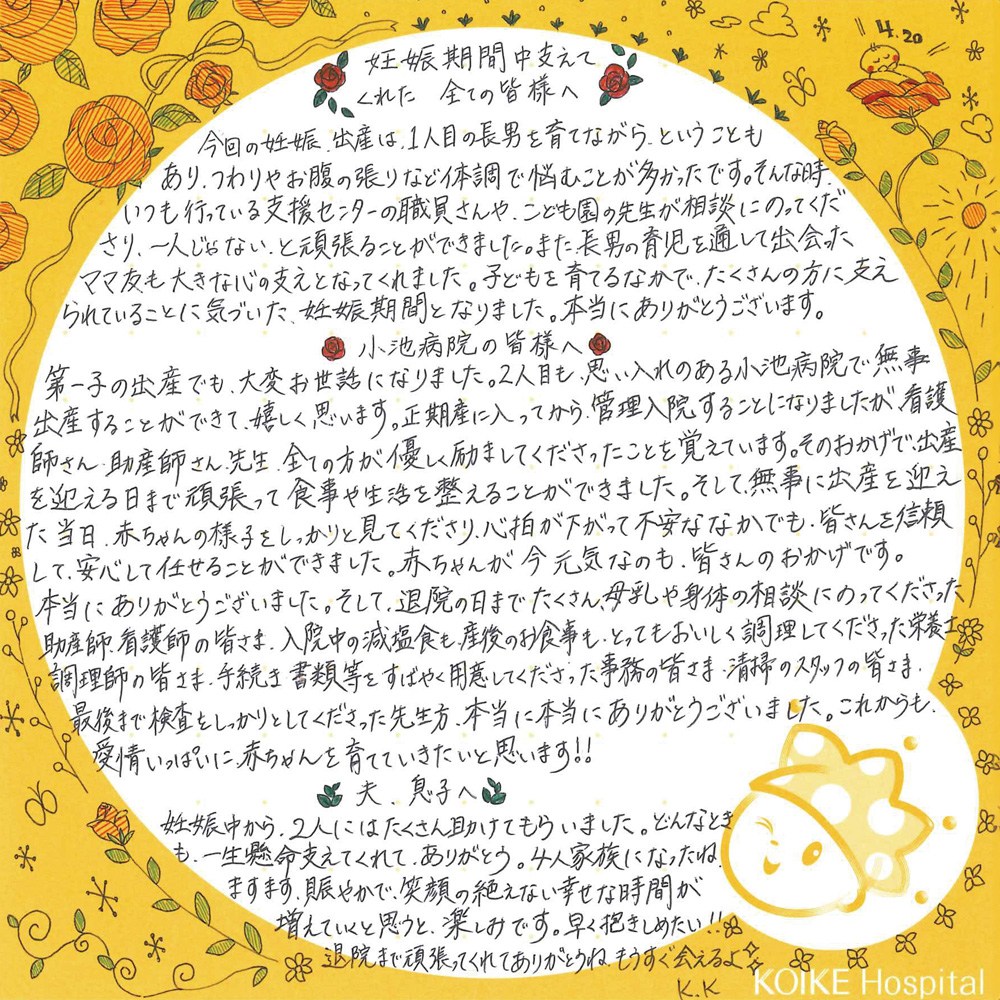 4.20
妊娠期間中支えて
くれた 全ての皆様へ
今回の妊娠、出産は、1人目の長男を育てながら、ということも
あり、つわりやお腹の張りなど体調で悩むことが多かったです。そんな時、
いつも行っている支援センターの職員さんや、こども園の先生が相談にのってくだ
さり、一人じゃない、と頑張ることができました。また、長男の育児を通して出会った
ママ友も大きな心の支えとなってくれました。子どもを育てるなかで、たくさんの方に支え
られていることに気づいた、妊娠期間となりました。本当にありがとうございます。
小池病院の皆様へ
第一子の出産でも、大変お世話になりました。2人目も、思い入れのある小池病院で無事
出産することができて、嬉しく思います。正期産に入ってから、管理入院することになりましたが、看護
師さん、助産師さん、先生、全ての方が優しく励ましてくださったことを覚えています。そのおかげで、出産
を迎える日まで頑張って食事や生活を整えることができました。そして、無事に出産を迎え
た当日、赤ちゃんの様子をしっかりと見てくださり、心拍が下がって不安ななかでも、皆さんを信頼
して、安心して任せることができました。赤ちゃんが今元気なのも、皆さんのおかげです。
本当にありがとうございました。そして、退院の日までたくさん、母乳や身体の相談にのってくださった
助産師、看護師の皆さま、入院中の減塩食も、産後のお食事も、とってもおいしく調理してくださった栄養士、
調理師の皆さま、手続き書類等をすばやく用意してくださった事務の皆さま、清掃のスタッフの皆さま、
最後まで検査をしっかりとしてくださった先生方、本当に本当にありがとうございました。これからも、
愛情いっぱいに、赤ちゃんを育てていきたいと思います!!
夫、息子へ
妊娠中から、2人にはたくさん助けてもらいました。どんなとき
も、一生懸命支えてくれて、ありがとう。4人家族になったね。
ますます、賑やかで、笑顔の絶えない幸せな時間が
増えていくと思うと、楽しみです。早く抱きしめたい!!
退院まで頑張ってくれてありがとうね。もうすぐ会えるよ
K.K
KOIKE Hospital